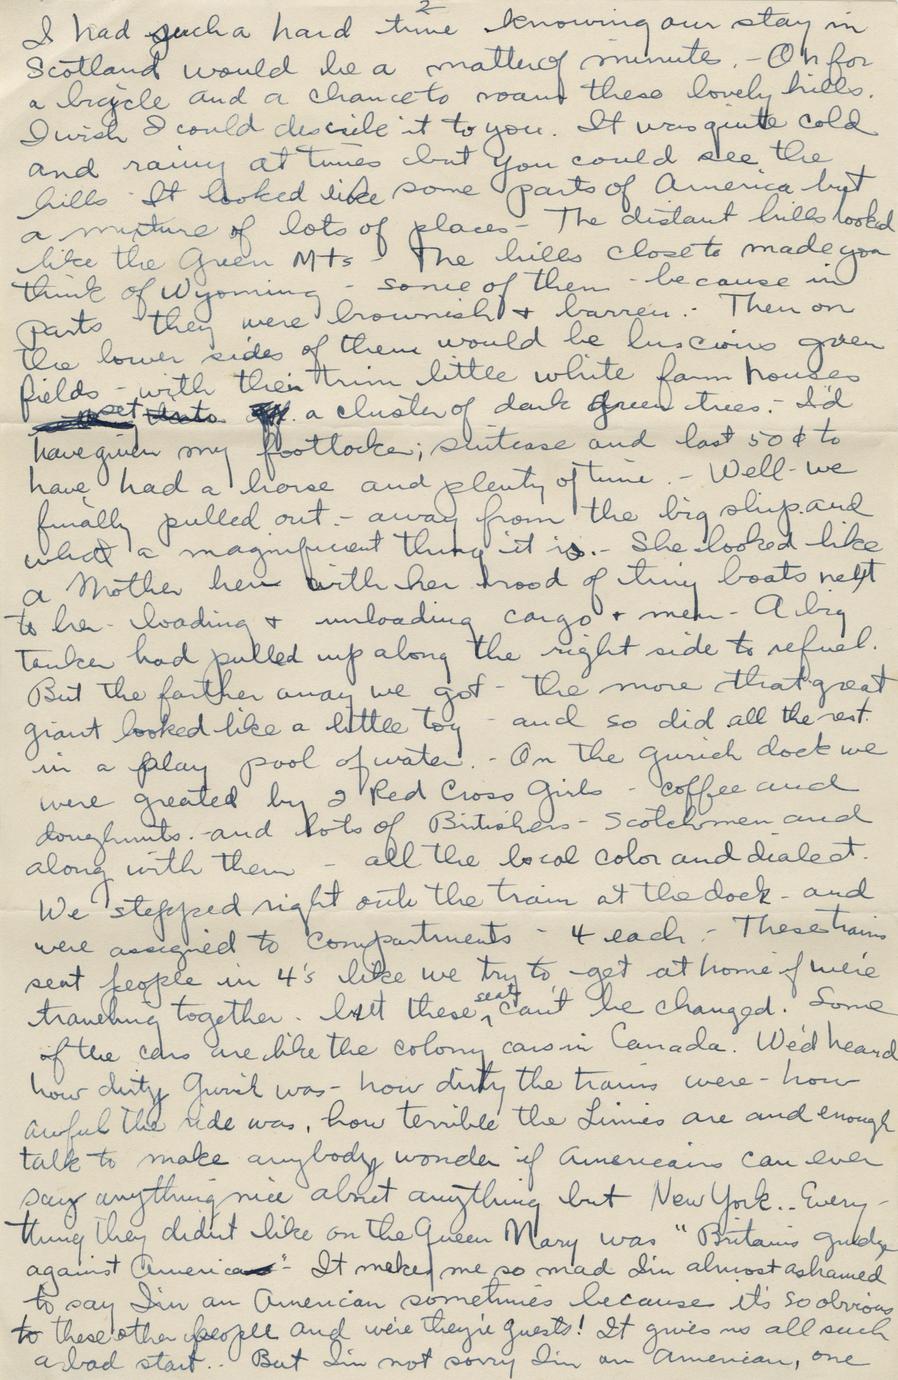 2
I had such a hard time knowing our stay in
Scotland would be a matter of minutes. - Oh for
a bicycle and a chance to roam these lovely hills.
I wish I could describe it to you. It was quite cold
and rainy at times but you could see the
hills - It looked like some parts of America but
a mixture of lots of places - The distant hills looked
like the Green Mts - The hills close to made you
think of Wyoming - some of them - because in
parts they were brownish + barren. - Then on
the lower sides of them would be luscious green
fields - with their trim little white farm houses
set a cluster of dark green trees. - I'd
have given my footlocker, suitcase and last 50¢ to
have had a horse and plenty of time. - Well - we
finally pulled out. - away from the big ship and
what a magnificent thing it is. - She looked like
a Mother hen with her brood of tiny boats next
to her - loading + unloading cargo + men - A big
tanker had pulled up along the right side to refuel.
But the farther away we got - the more that great
giant looked like a little toy - and so did all the rest
in a play pool of water. - On the Gurich dock we
were greated by 2 Red Cross Girls - coffee and
doughnuts. - and lots of Britishers - Scotchmen and
along with them - all the local color and dialect.
We stepped right onto the train at the dock - and
were assigned to compartments - 4 each. - These trains
seat people in 4's like we try to get at home if we're
traveling together - but these seats can't be changed. Some
of the cars are like the colony cars in Canada. We'd heard
how dirty was - how dirty the trains were - how
awful the ride was, how terrible the Limies are and enough
talk to make anybody wonder if Americans can ever
say anything nice about anything but New York. . Every-
thing they didn't like on the Queen Mary was "Britains grudge
against America" - It makes me so mad I'm almost ashamed
to say I'm an American sometimes because it's so obvious
to these other people and we're they're guests! It gives us all such
a bad start. . But I'm not sorry I'm an American, one